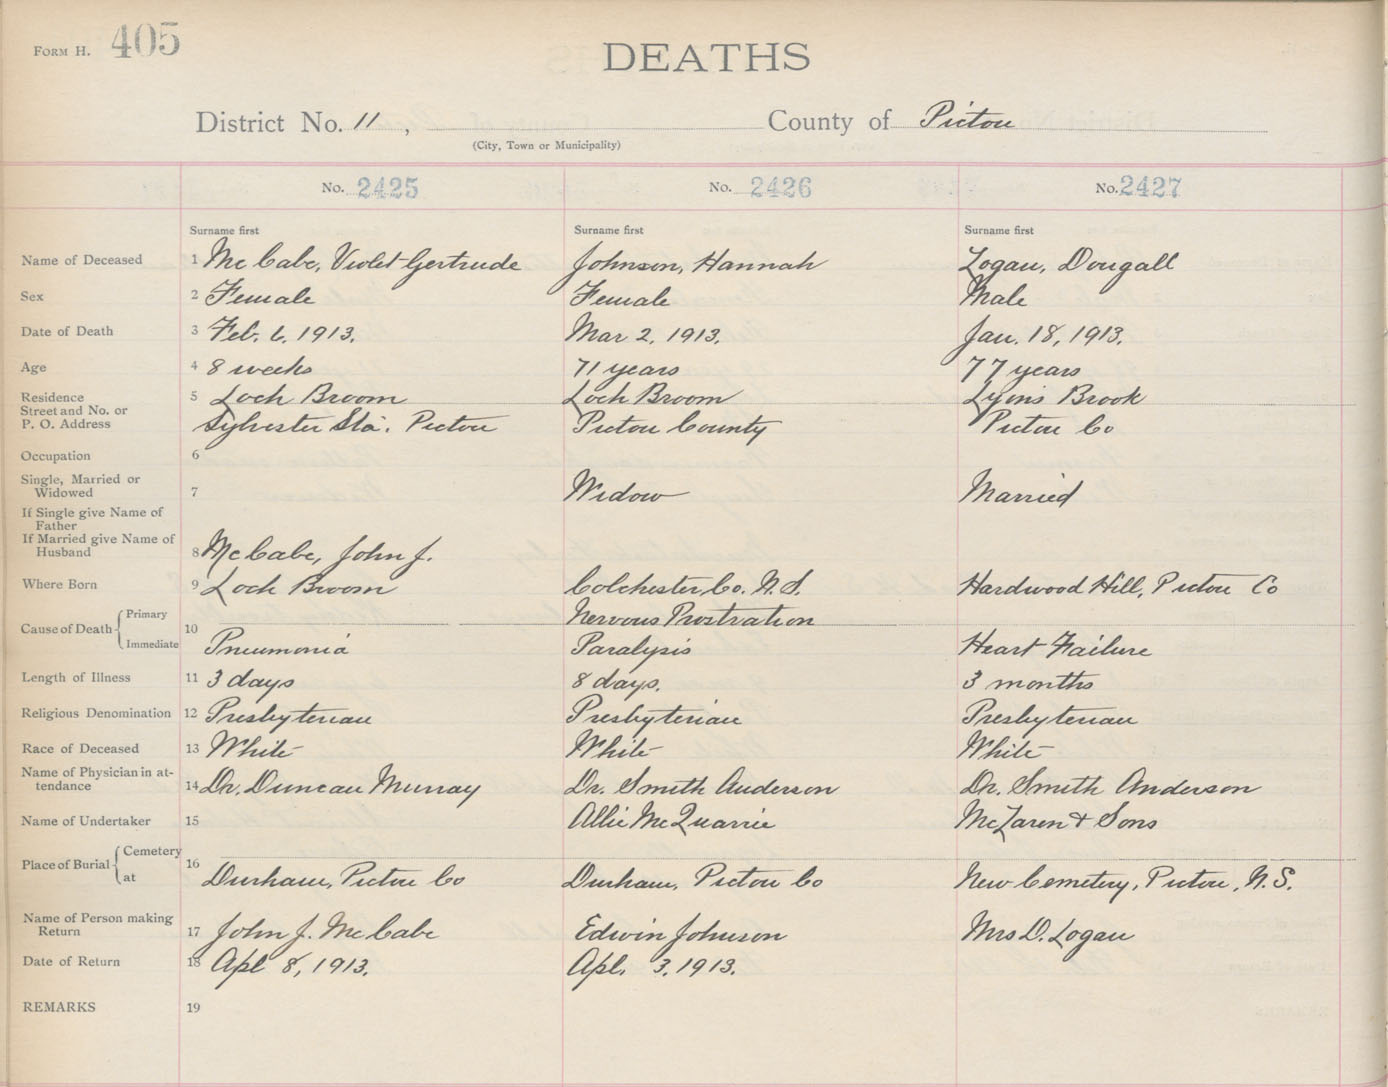 FORM H. 405
DEATHS
District No. 11, County of Pictou
(City, Town or Municipality)
No. 2425 No. 2426 No. 2427
Surname first Surname first Surname first
Name of Deceased 1 McCabe, Violet Gertrude Johnson, Hannah Logan, Dougall
Sex 2 Female Female Male
Date of Death 3 Feb. 6, 1913. Mar 2, 1913. Jan. 18, 1913.
Age 4 8 weeks 71 years 77 years
Residence 5 Loch Broom Loch Broom Lyons Brook
Street and No. or
P. O. Address Sylvester Sta. Pictou Pictou County Pictou Co
Occupation 6
Single, Married or
Widowed 7 Widow Married
If Single give Name of
Father
If Married give Name of
Husband 8 McCabe, John J.
Where Born 9 Loch Broom Colchester Co. N.S. Hardwood Hill, Pictou Co
Primary Nervous Prostration
Cause of Death 10
Immediate Pneumonia Paralysis Heart Failure
Length of Illness 11 3 days 8 days. 3 months
Religious Denomination 12 Presbyterian Presbyterian Presbyterian
Race of Deceased 13 White White White
Name of Physician in at-
tendance 14 Dr. Duncan Murray Dr. Smith Anderson Dr. Smith Anderson
Name of Undertaker 15 Allie McQuarrie McLaren & Sons
Cemetery
Place of Burial 16
at Durham, Pictou Co Durham, Pictou Co New Cemetery, Pictou, N.S.
Name of Person making
Return 17 John J. McCabe Edwin Johnson Mrs D. Logan
Date of Return 18 Apl 8, 1913. Apl. 3, 1913.
REMARKS 19